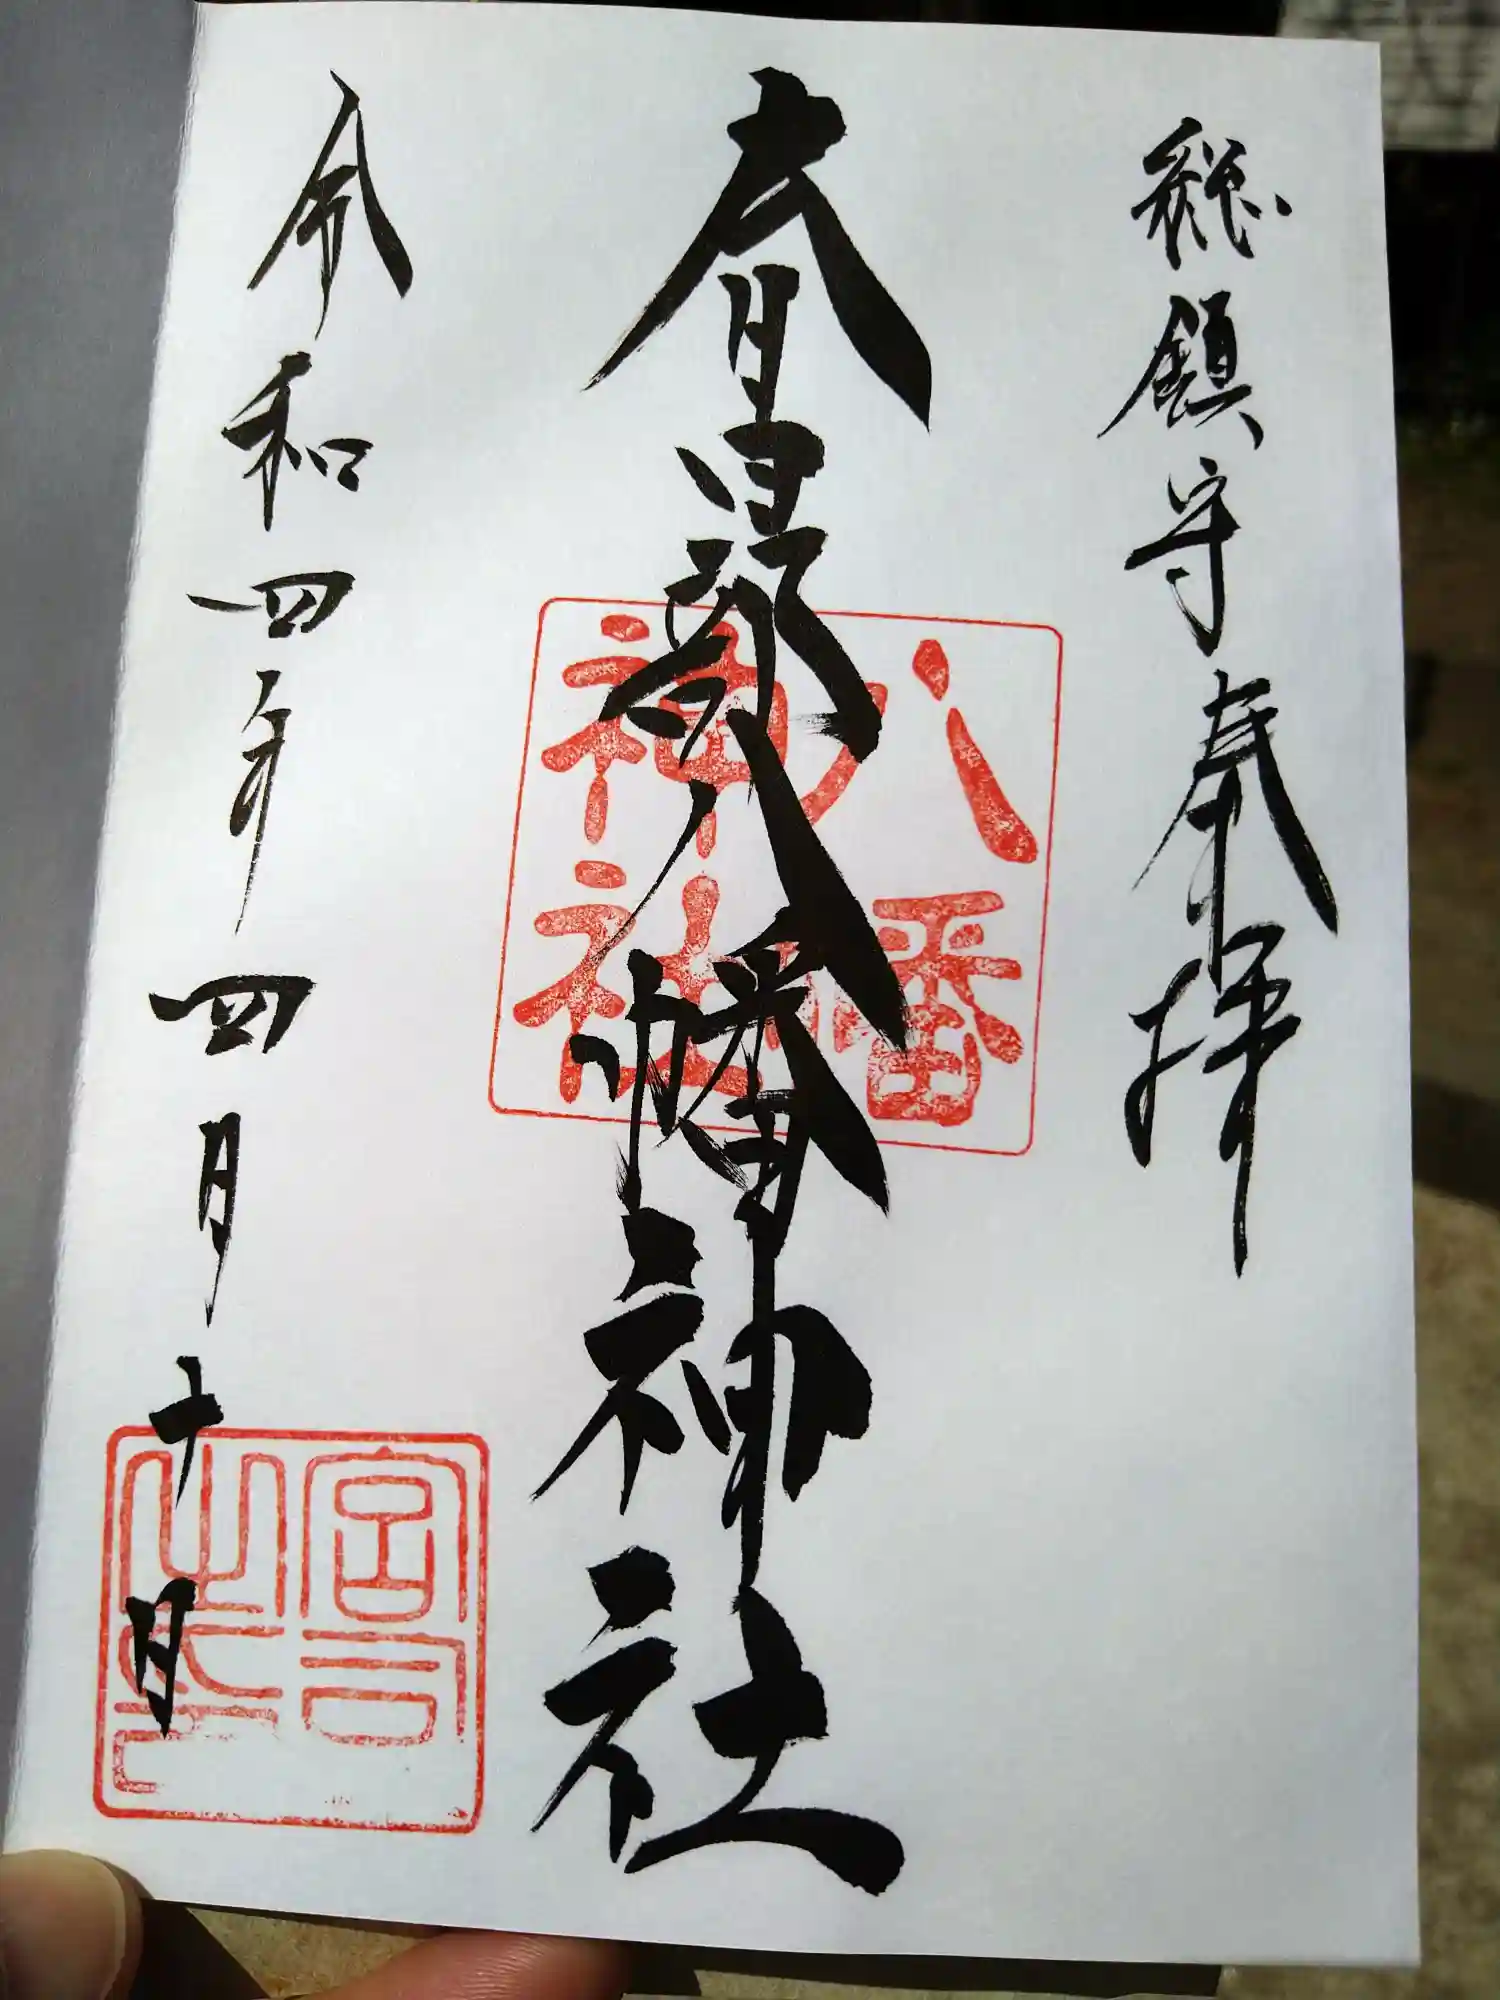 総鎮守奉拝
春日部八幡神社
八幡
神社
令和四年四月十日
宮司
之印